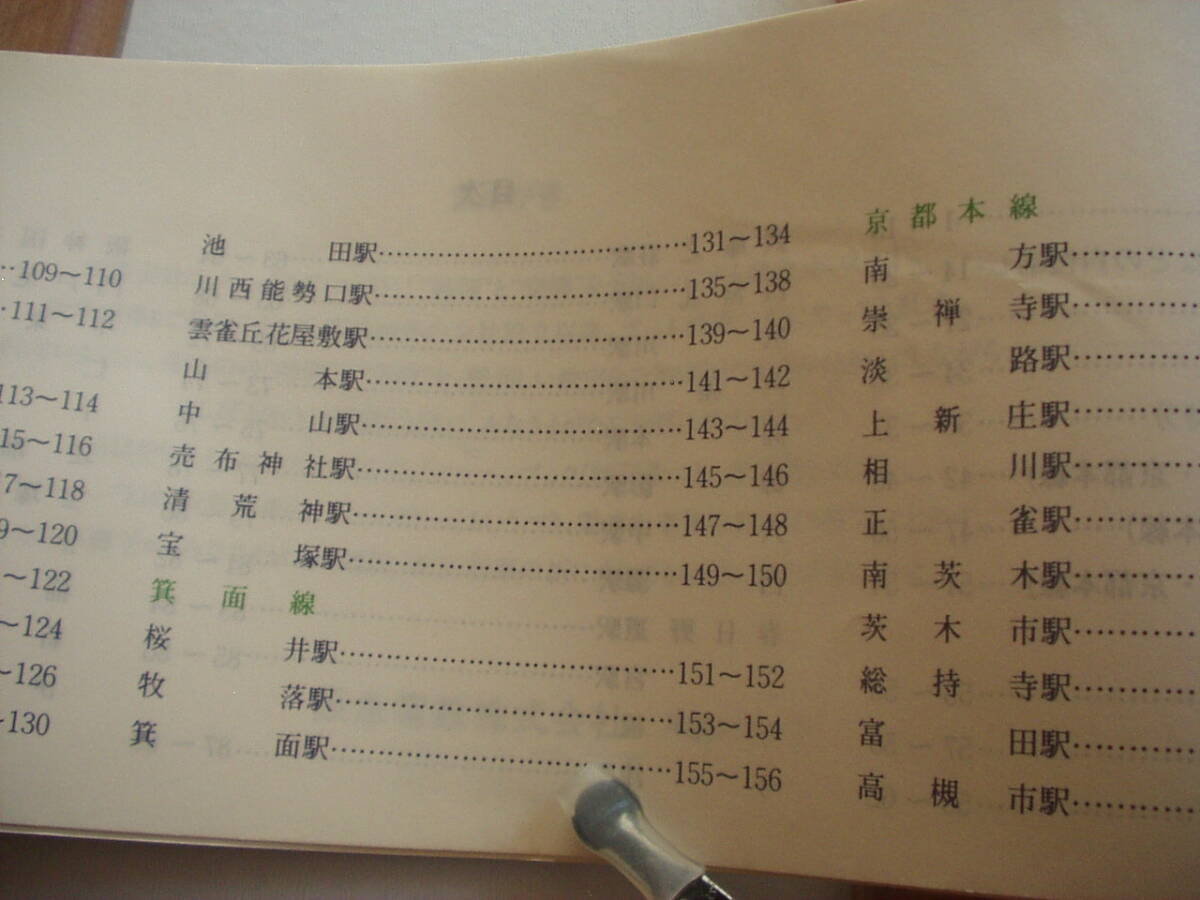 …109〜110
…111〜112
113〜114
15〜116
7〜118
9〜120
〜122
〜124
〜126
〜130
池田駅……131〜134
川西能勢口駅……135〜138
雲雀丘花屋敷駅……139〜140
山本駅……141〜142
中山駅……143〜144
売布神社駅……145〜146
清荒神駅……147〜148
宝塚駅……149〜150
箕面線
桜井駅……151〜152
牧落駅……153〜154
箕面駅……155〜156
京都本線
南方駅……
崇禅寺駅……
淡路駅……
上新庄駅……
相川駅……
正雀駅……
南茨木駅……
茨木市駅……
総持寺駅……
富田駅……
高槻市駅……